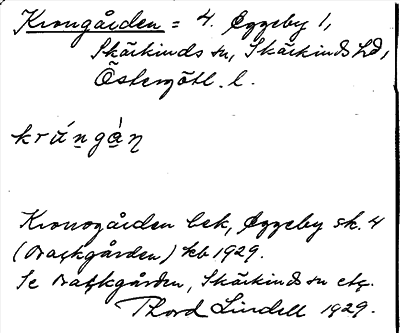 Krongården = 4. Öggeby 1,
Skärkinds sn, Skärkinds hd,
Östergötl. l.
krú̄ngà̱ṇ
Kronogården bek, Öggeby sk. 4
(Backgården) kb 1929.
Se Backgården, Skärkinds sn etc.
Thord Lindell 1929.